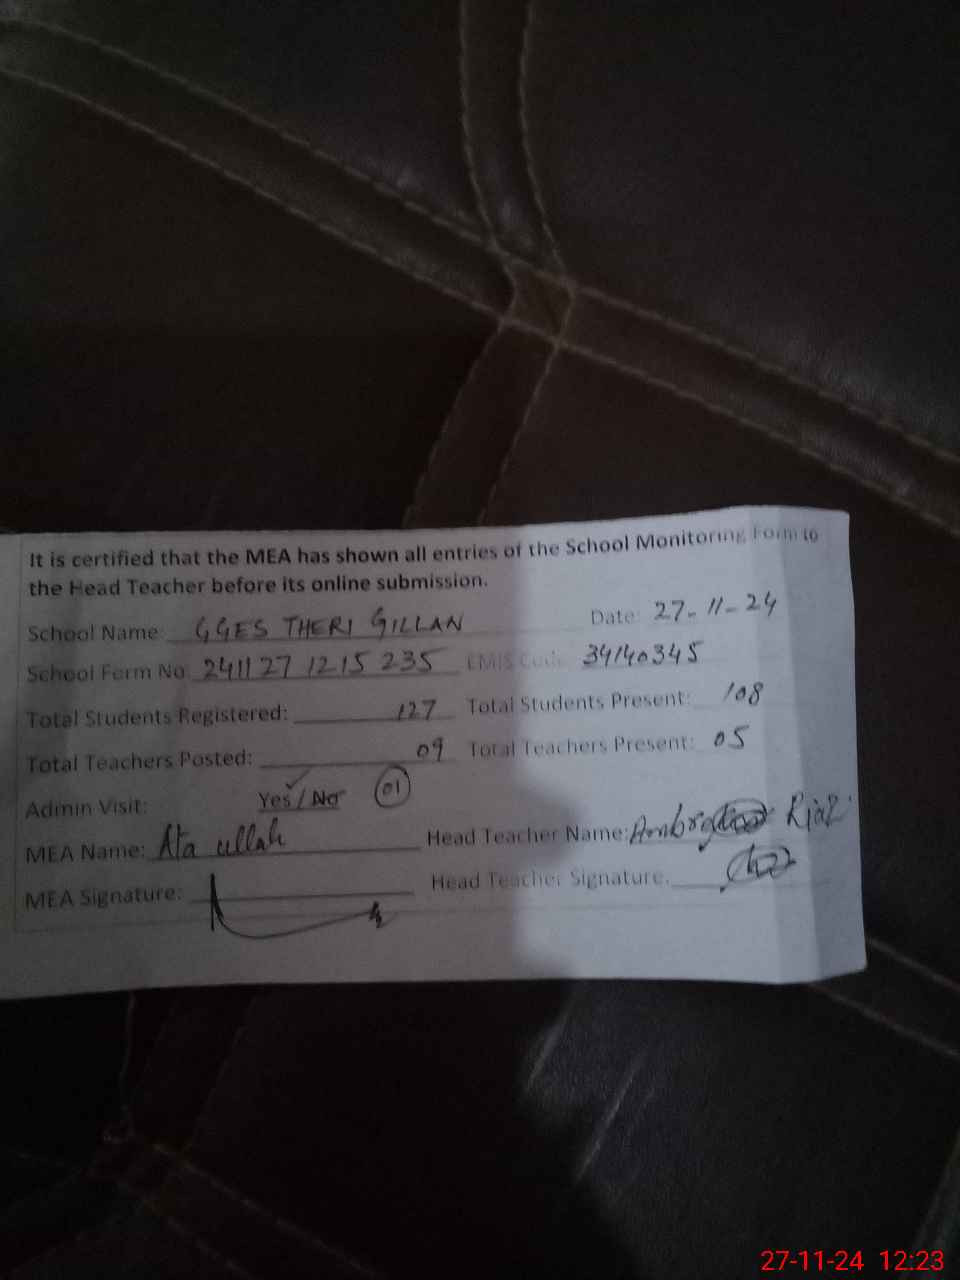 It is certified that the MEA has shown all entries of the School Monitoring Form to
the Head Teacher before its online submission.
School Name: GGES THERI GILLAN Date: 27-11-24
School Form No: 241127 1215 235 EMIS Code: 34140345
Total Students Registered: 127 Total Students Present: 108
Total Teachers Posted: 09 Total Teachers Present: 05
Admin Visit: Yes / No 01
MEA Name: Ata ullah Head Teacher Name: Riaz
MEA Signature: Head Teacher Signature.
27-11-24 12:23